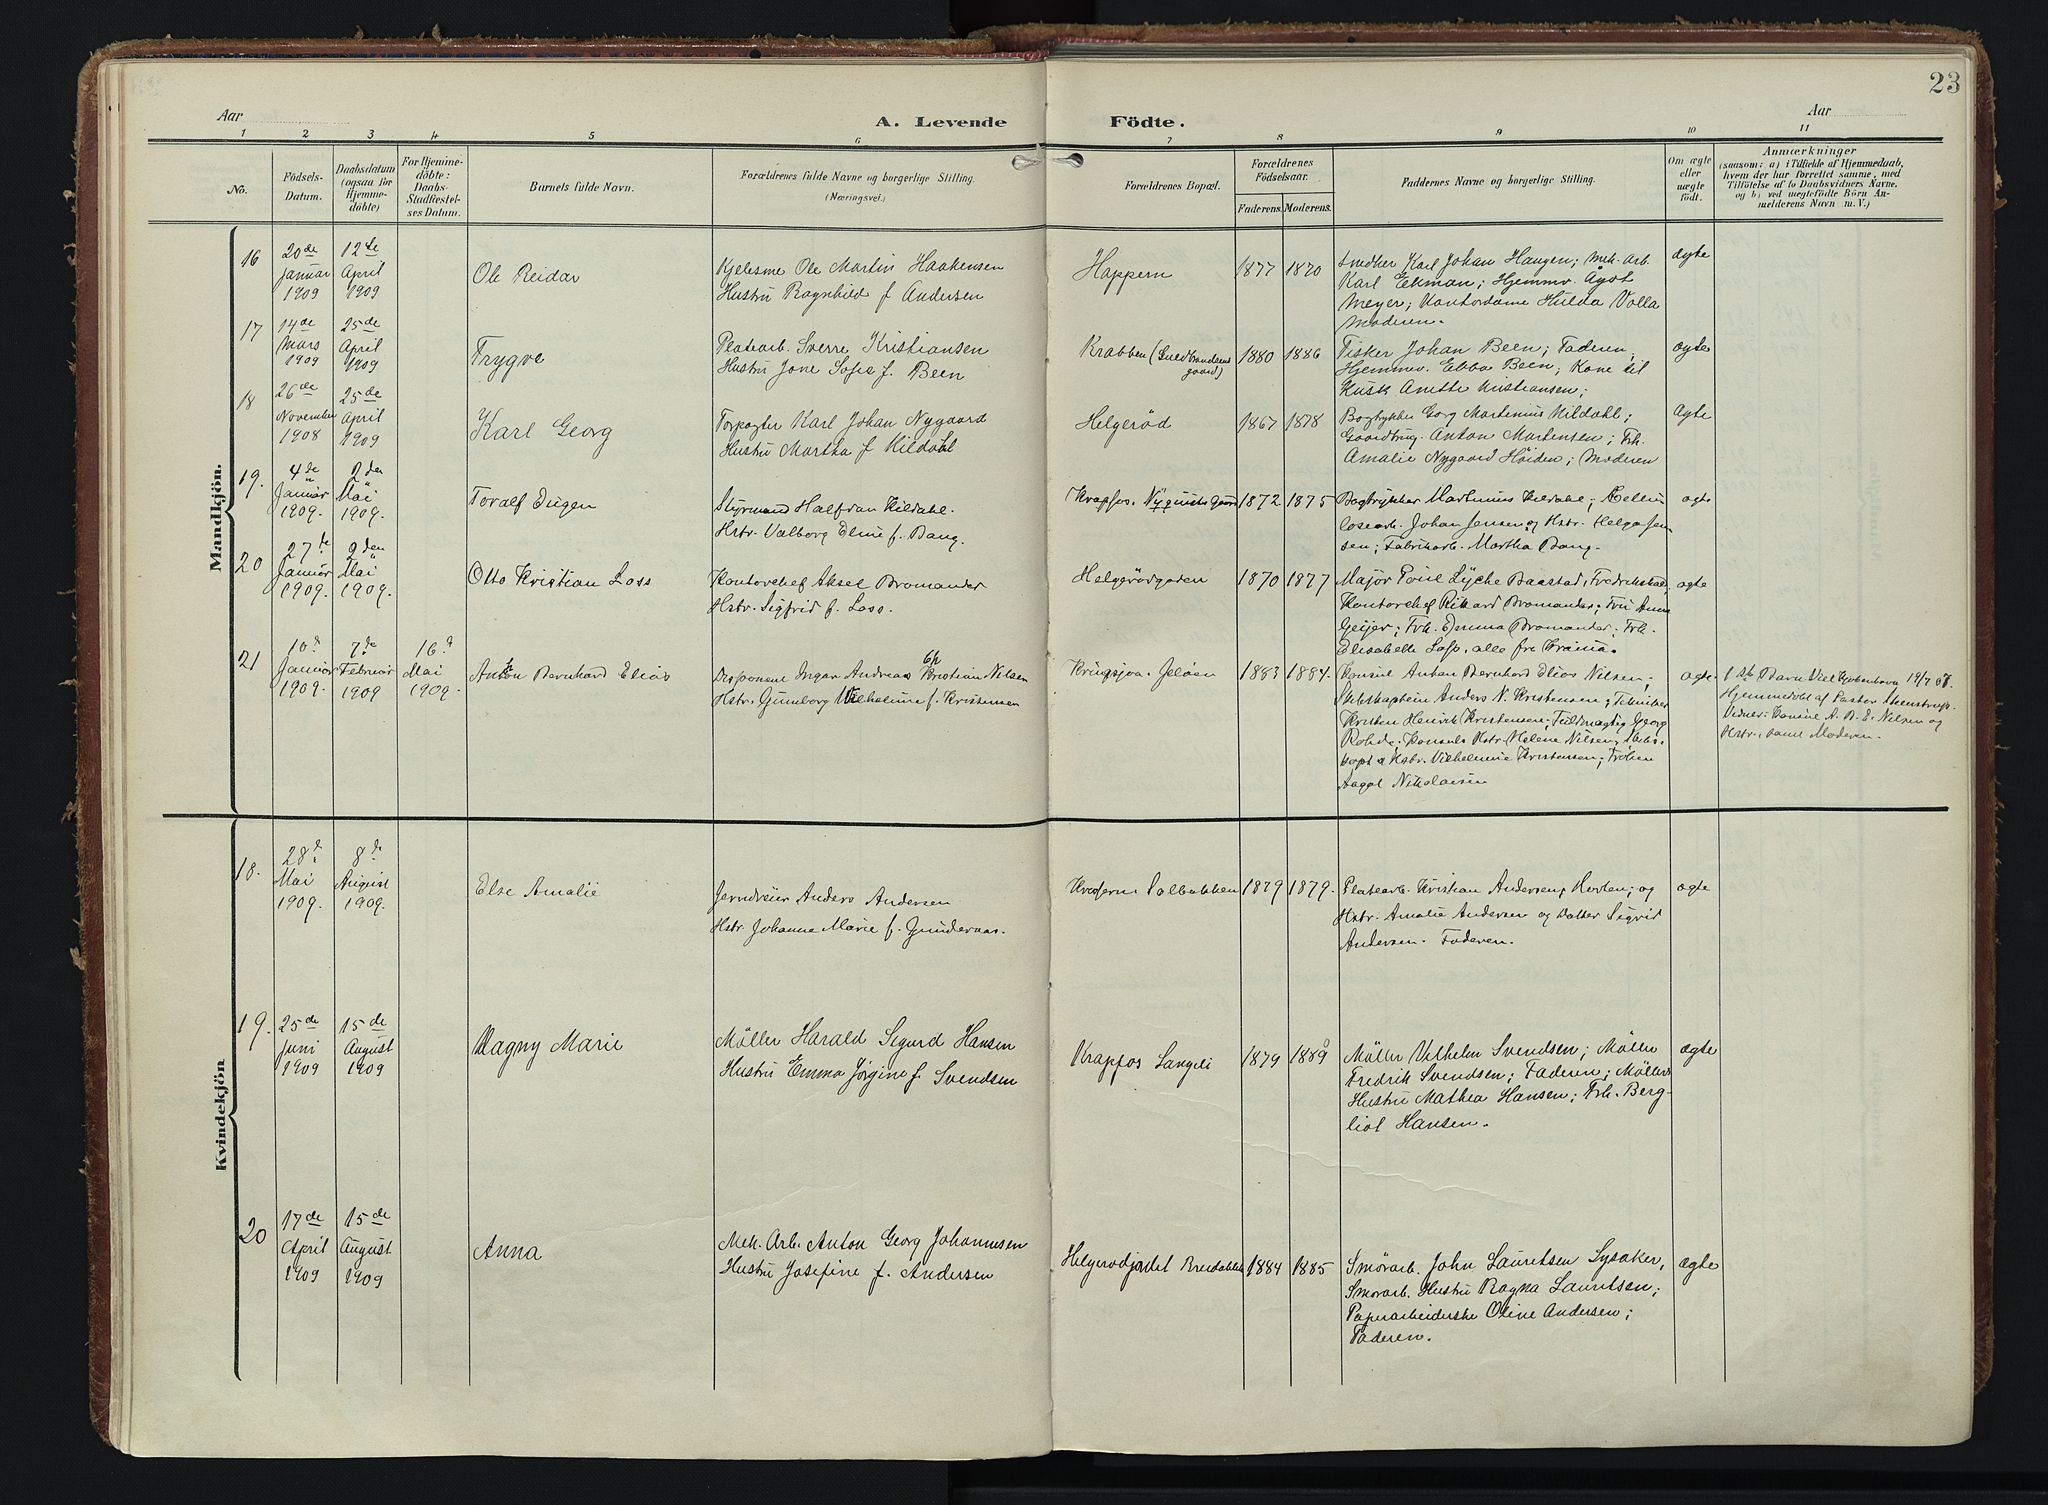 23
Aar
A. Levende Födte.
Aar
1 2 3 4 5 6 7 8 9 10 11
No.
Födsels-
Datum.
Daabsdatum
(ogsaa for
Hjemme-
döbte)
For Hjemme-
döbte:
Daabs-
Stadfæstel-
ses Datum.
Barnets fulde Navn.
Forældrenes fulde Navne og borgerlige Stilling.
(Næringsvei.)
Forældrenes Bopæl.
Forældrenes
Födselsaar.
Faderens.
Moderens.
Faddernes Navne og borgerlige Stilling.
Om ægte
eller
uægte
födt.
Anmærkninger
(saasom: a) i Tilfælde af Hjemmedaab,
hvem der har forrettet samme, med
Tilföielse af to Daabsvidners Navne,
og b) ved uægtefödte Börn An-
melderens Navn m. V.)
Mandkjön.
16
20de
Januar
1909
12te
April
1909
Ole Reidar
Ole Martin Haakensen
Hustru Ragnhild f Andersen
Happern
1877
1870
Snedker Karl Johan Haugen; Mek. Arb.
Karl Ekman; Hjemmv. Ågot
Meyer; Kontordame Hulda Volla
Moderen.
ægte
17
14de
Mars
1909
25de
April
1909
Trygve
Platearb. Sverre Kristiansen
Hustru Jone Sofie f. Been
Krabben
gaard)
1880
1886
Tisker Johan Been; Faderen,
Hjemmv. Ebba Been; Kone til
Kusk Anette Kristiansen;
ægte
18
26de
November
1908
25de
April
1909
Karl Georg
Karl Johan Nygaard
Hustru Martha f Kildahl
Helgerød
1867
1878
Bogtykker Georg Martenius Kildahl;
Gaardbrug. Anton Martensen; Frk.
Amalie Nygaard Høiden; Moderen
Ægte
19.
4de
Januar
1909.
2den
Mai
1909.
Toralf Eugen
Styrmand Halfdan Kildahl.
Hstr. Valborg Eline f. Bang.
Krapfos. Nyquists Gaard
1872
1875
Bogtrykker Martinius Kildahl; Cellu-
losearb. Johan Jensen og Hstr. Helga Jen
sen; Fabrikarb. Martha Bang.
ægte
20
27de
Januar
1909.
9den
Mai
1909.
Otto Kristian Loss
Kontorchef Aksel Bromander
Hstr. Sigfrid f. Loss.
Helgerødgaden
1870
1877
Major Poul Lÿche Baastad, Fredrikshald,
Kontorchef Rikard Bromander; Fru Anna
Geijer; Frk. Emma Bromander; Frk.
Elisabeth Loss, alle fra
ægte
21
10de
Januar
1909.
7de
Februar
1909
16de
Mai
1909.
Anton Bernhard Elias
Disponent Ingar Andreas Kristian Nilsen
Hstr. Gunborg Vilhelmine f. Kristensen
Kringsjoa. Jeløen
1883
1884.
Konsul Anton Bernhard Elias Nilsen;
Skibskaptein Anders N. Kristensen; Tekniker
Kristen Henrik Kristensen; Fuldmægtig Georg
Rohde; Konsuls Hstr. Helene Nilsen; Skibs-
kapt s Hstr. Vilhelmine Kristensen; Frøken
Aagot Nikolaisen
ægte
1ste Barn Viet Kjøbenhavn 19/7 07.
Hjemmedøbt af Pastor Steenstrup.
Vidner: Konsul A. B. E. Nilsen og
Hstr., samt Moderen.
Kvindekjön
18.
28de
Mai
1909.
8de
August
1909.
Else Amalie
Jerndreier Anders Andersen
Hstr. Johanne Marie f. Gundersen.
1879
1879.
Platearb. Kristian Andersen, Horten; og
Hstr. Amalie Andersen og Datter Sigrid
Andersen. Faderen.
ægte
19.
25de
Juni
1909
15de
August
1909
Dagny Marie
Møller Harald Sigurd Hansen
Hustru Emma Jørgine f. Svendsen
Krapfos Langli
1879
1889
Møller Vilhelm Svendsen; Møller
Fredrik Svendsen; Faderen; Møllers
Hustru Mathea Hansen; Frk. Berg-
liot Hansen.
ægte
20
17de
April
1909
15de
August
1909
Anna
Mek. Arb. Anton Georg Johannesen
Hustru Josefine f. Andersen
Helgerødjordet
1884
1885
Smørarb. John Lauritsen Sysaker,
Smørarb. Hustru Ragna Lauritsen;
Papirarbeiderske Oline Andersen;
Faderen.
ægte